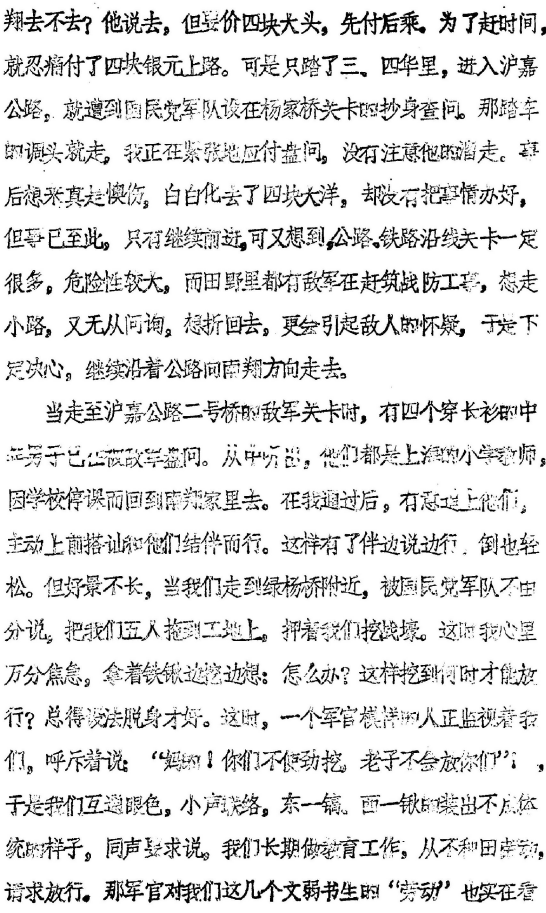 翔去不去?他说去,但要价四块大头,先付后乘。为了赶时间,
就忍痛付了四块银元上路。可是只踏了三、四华里,进入沪嘉
公路,就遭到国民党军队设在杨家桥关卡的抄身查问。那踏车
的调头就走,我正在紧张地应付盘问,没有注意他的溜走。事
后想来真是懊伤,白白化去了四块大洋,却没有把事情办好,
但事已至此,只有继续前进,可又想到,公路、铁路沿线关卡一定
很多,危险性较大,而田野里都有敌军在赶筑战防工事,想走
小路,又无从问询,想折回去,更会引起敌人的怀疑,于是下
定决心,继续沿着公路向南翔方向走去。
当走至沪嘉公路二号桥的敌军关卡时,有四个穿长衫的中
年男子已在被敌军盘问。从中听出,他们都是上海的小学教师,
因学校停课而回到南翔家里去。在我通过后,有意追上他们,
主动上前搭讪和他们结伴而行。这样有了伴边说边行,倒也轻
松。但好景不长,当我们走到绿杨桥附近,被国民党军队不由
分说,把我们五人拖到工地上,押着我们挖战壕。这时我心里
万分焦急,拿着铁锹边挖边想:怎么办?这样挖到何时才能放
行?总得设法脱身才好。这时,一个军官模样的人正监视着我
们,呼斥着说:“妈的!你们不使劲挖,老子不会放你们”!,
于是我们互递眼色,小声联络,东一镐,西一锹的装出不成体
统的样子,同声要求说,我们长期做教育工作,从不和田劳动,
请求放行。那军官对我们这几个文弱书生的“劳动”也实在看